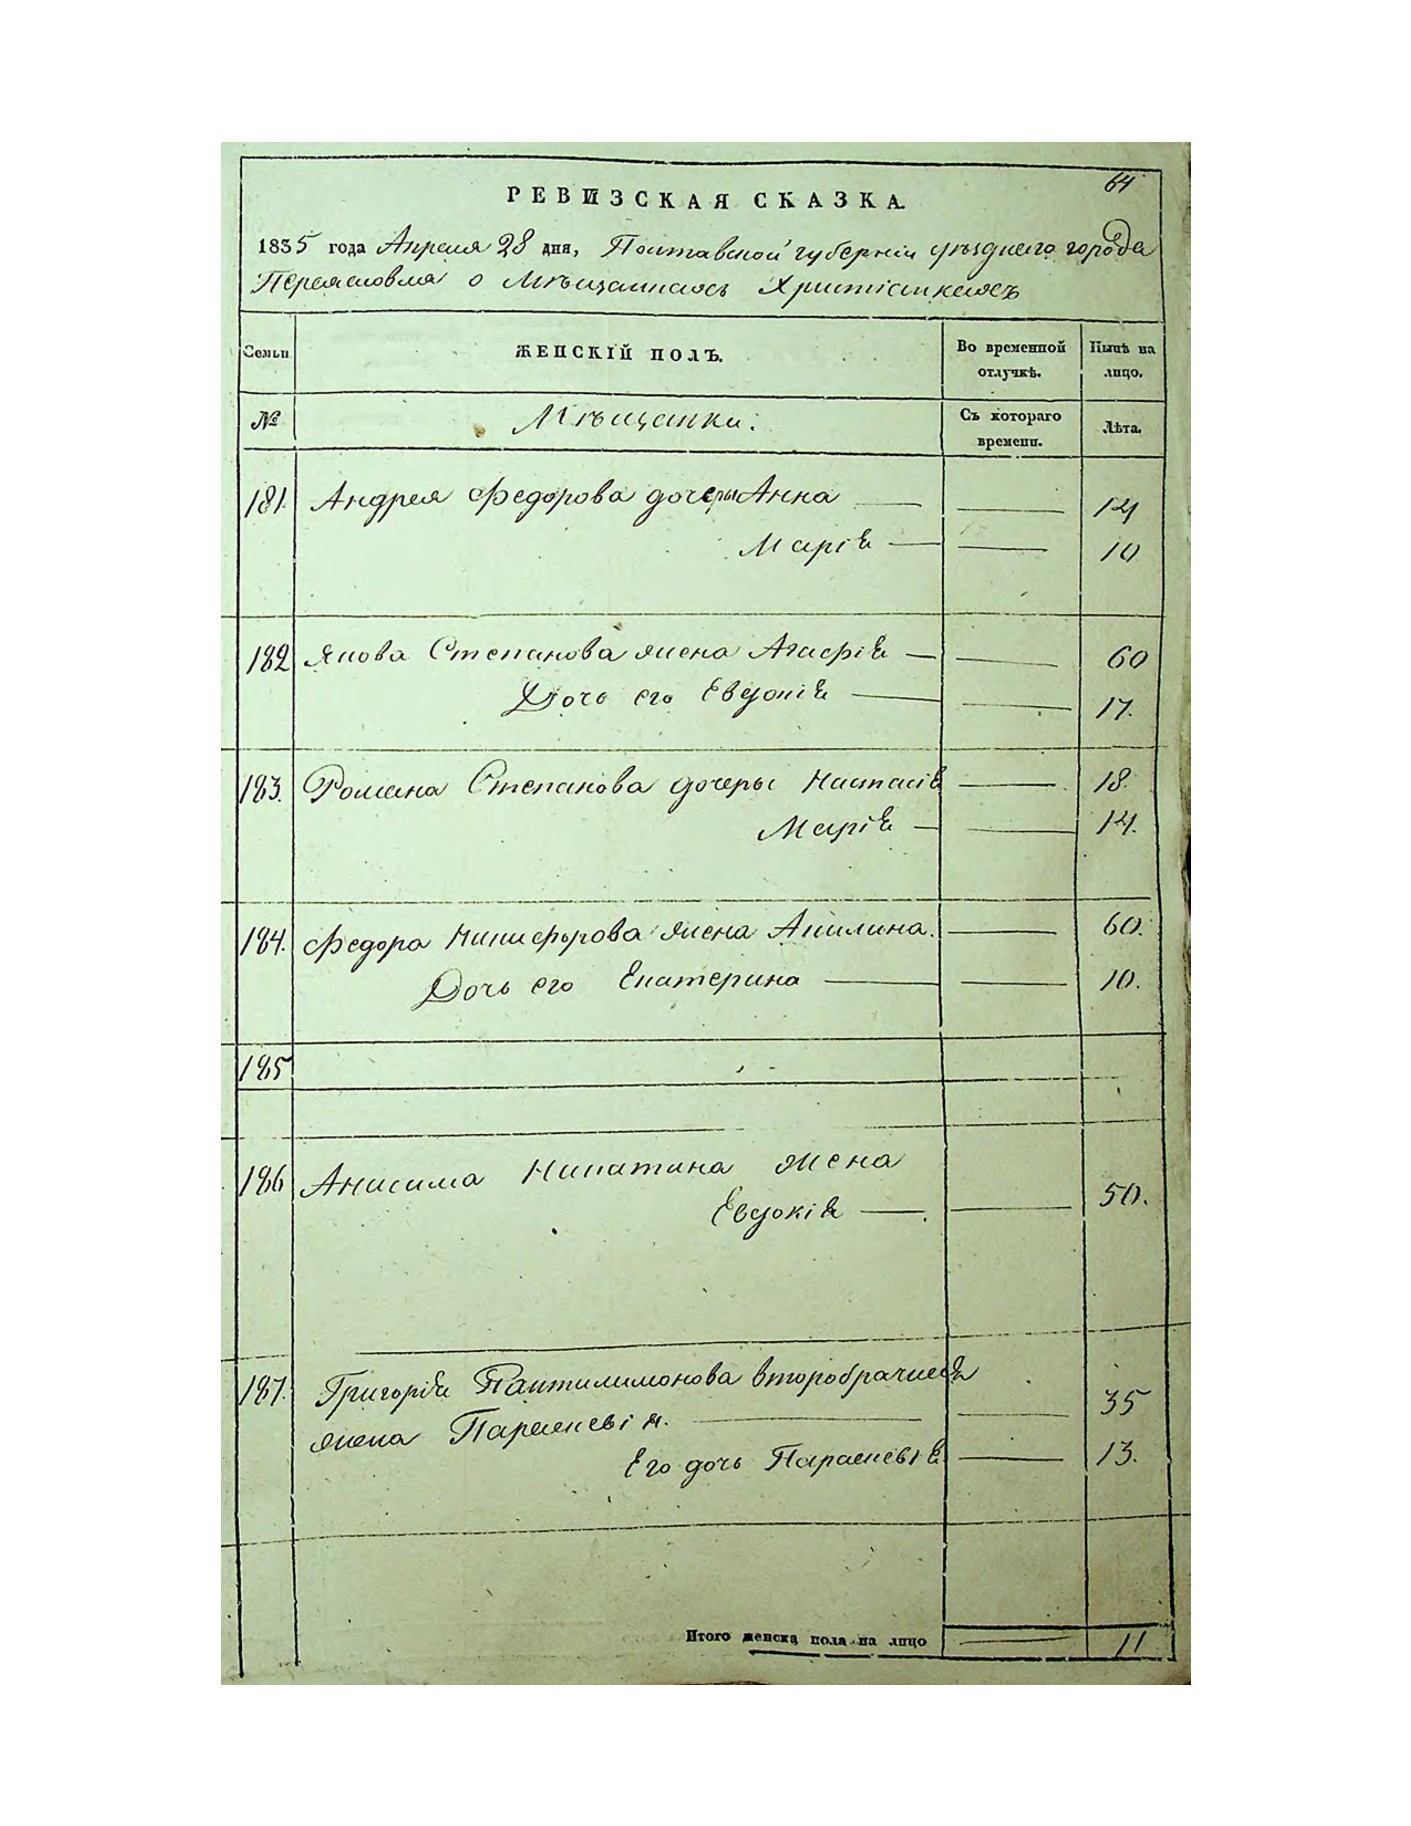 64
РЕВИЗСКАЯ СКАЗКА.
1835 года Апреля 28 дня, Полтавской губерніи уѣзднаго города
Переяславля о Мѣщанахъ Христіанахъ
Семьи ЖЕНСКІЙ ПОЛЪ. Во временной отлучкѣ. Нынѣ на лицо.
№ Мѣщанки: Съ котораго времени. Лѣта.
181. Андрея Федорова дочеры Анна — — 14
Марія — — 10
182 Якова Степанова жена Агафія — — 60
Дочь его Евдокія — — 17.
183. Романа Степанова дочеры Настасія — 18.
Марія — — 14.
184. Федора Никифорова жена Акилина. — 60.
Дочь его Екатерина — — 10.
185
186 Анисима Никитина жена
Евдокія — — 50.
187. Григорія Пантилимонова второбрачная
жена Параскевія. — — 35
Его дочь Параскевія — 13.
Итого женска пола на лицо — 11